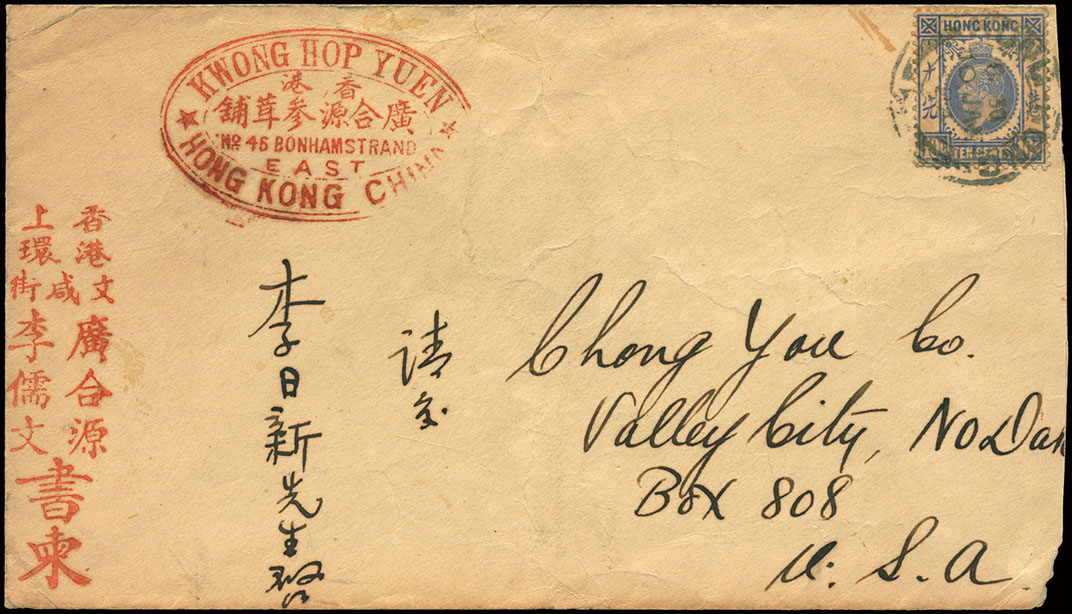 KWONG HOP YUEN
香港
廣合源參茸舖
No 46 BONHAM STRAND
EAST
HONG KONG CHINA
HONG KONG
TEN CENTS
香港文咸
上環街
廣合源
李儒文
書柬
請交
李日新先生啓
Chong You Co.
Valley City, No Dak
Box 808
U. S. A